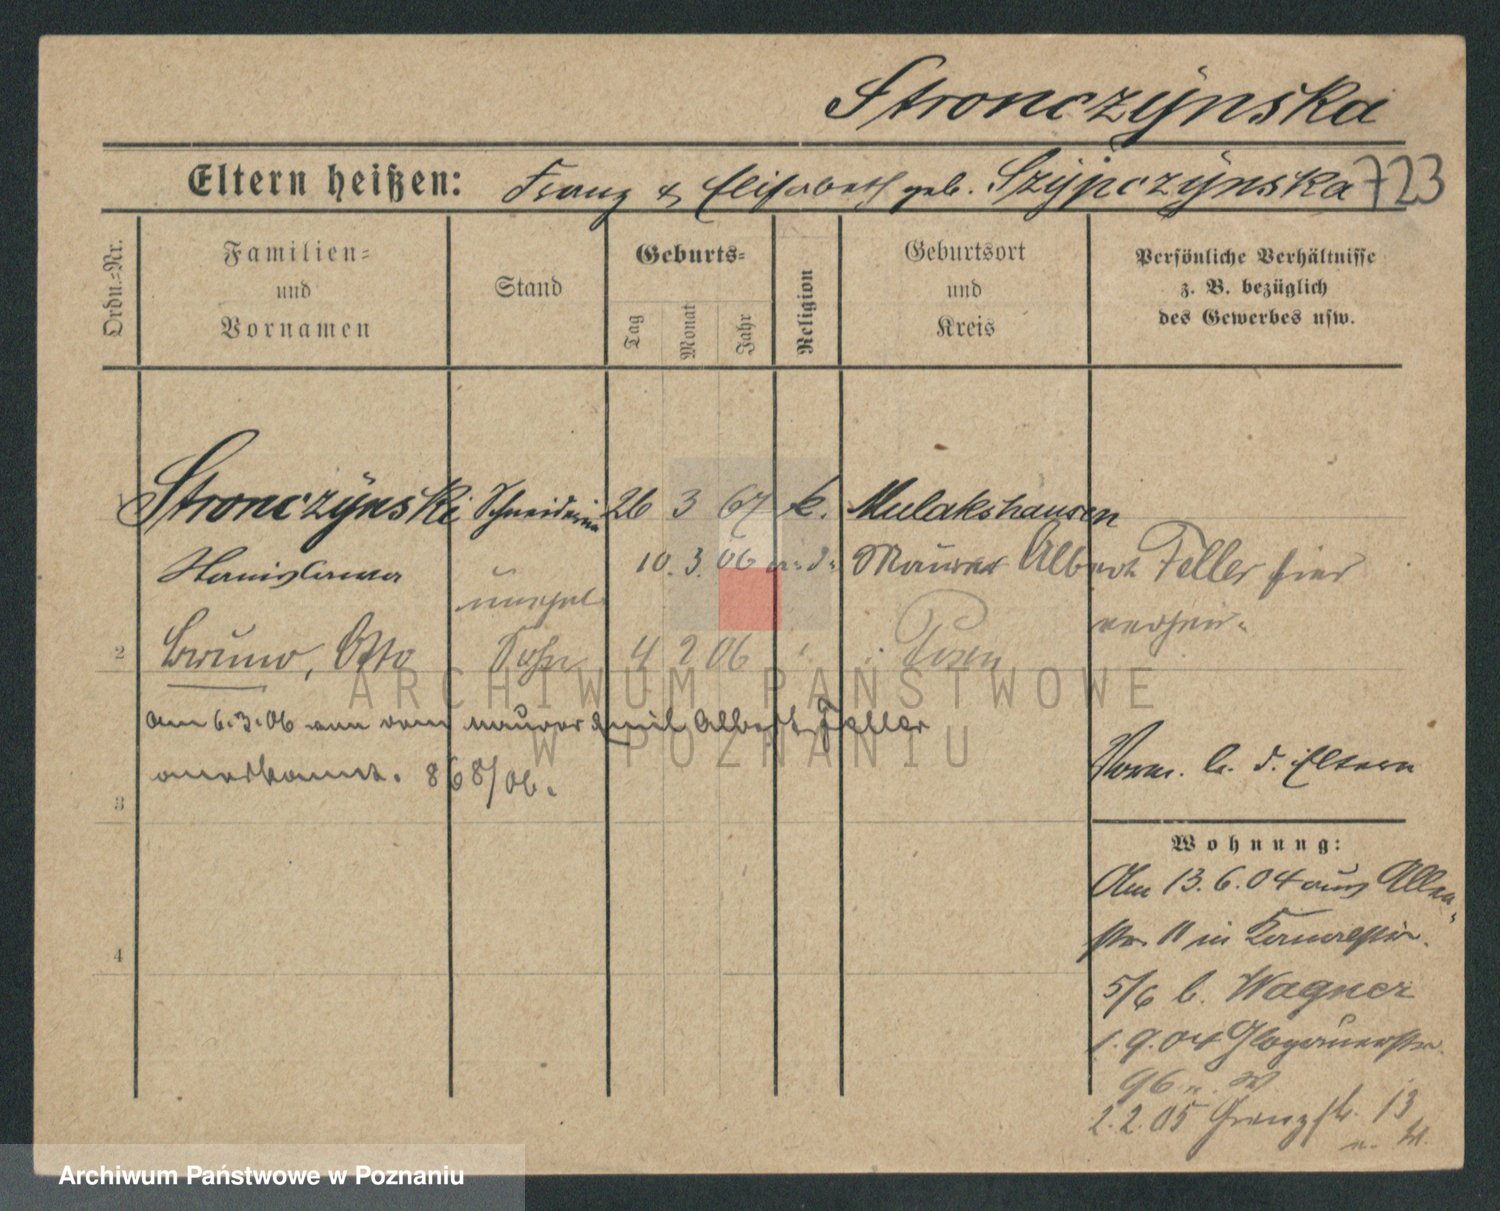 Stronczÿnska
Eltern heißen: Franz & Elisabeth geb. Szÿpczÿnska 723
Ordn.=Nr.
Familien=
und
Vornamen
Stand
Geburts=
Tag
Monat
Jahr
Religion
Geburtsort
und
Kreis
Persönliche Verhältnisse
z. B. bezüglich
des Gewerbes usw.
Stronczÿnski Schneiderin 26 3 67 k. Mulakshausen
Stanislawa 10. 3. 06 Maurer Albert Feller hier
unehel.
2 Bruno, Otto Sohn 4 2 06 Posen
am 6.3.06 von dem Maurer Emil Albert Feller
anerkannt. 868/06.
Vorm. b. d. Eltern
3
Wohnung:
Am 13.6.04 aus Allee
str. 11 in
4
5/6 b. Wagner
1.9.04 Glogauerstr.
96
2.2.05 Grenzstr. 13
ARCHIWUM PAŃSTWOWE
W POZNANIU
Archiwum Państwowe w Poznaniu